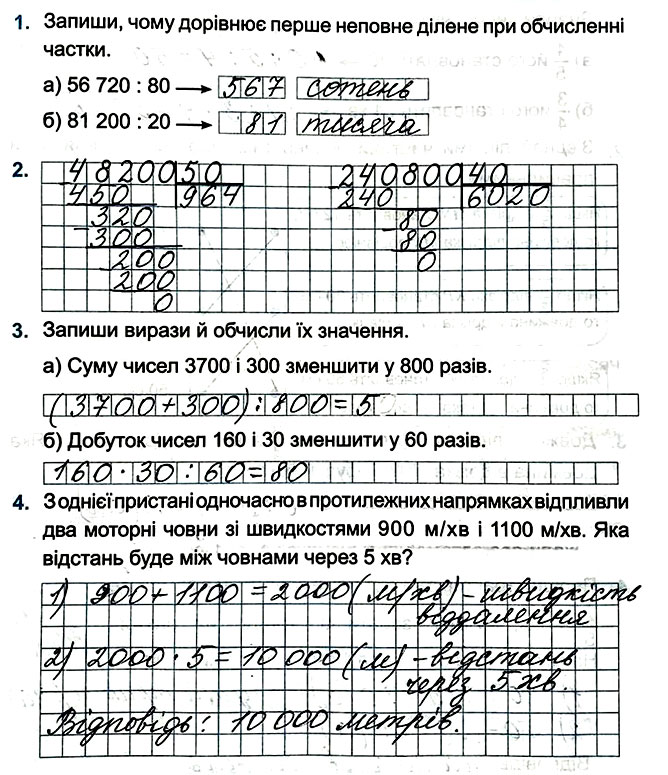 1. Запиши, чому дорівнює перше неповне ділене при обчисленні
частки.
а) 56 720 : 80 → 567 сотень
б) 81 200 : 20 → 81 тисяча
2. 48200 50 240800 40
450 964 240 6020
320 80
300 80
200 0
200
0
3. Запиши вирази й обчисли їх значення.
а) Суму чисел 3700 і 300 зменшити у 800 разів.
(3700+300):800=5
б) Добуток чисел 160 і 30 зменшити у 60 разів.
160·30:60=80
4. З однієї пристані одночасно в протилежних напрямках відпливли
два моторні човни зі швидкостями 900 м/хв і 1100 м/хв. Яка
відстань буде між човнами через 5 хв?
1) 900+1100=2000(м/хв)-швидкість
віддалення
2) 2000·5=10 000(м)-відстань
через 5хв.
Відповідь: 10 000 метрів.